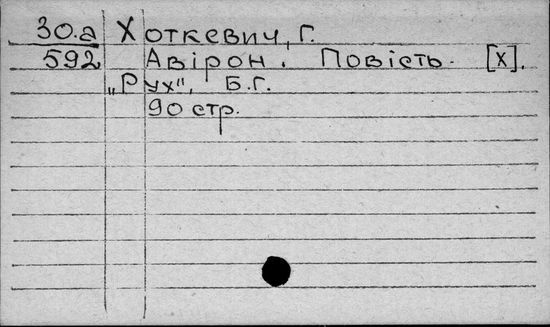 30.а Хоткевич, Г.
592 Авірон. Повість. [Х].
„Рух", Б.Г.
90 стр.